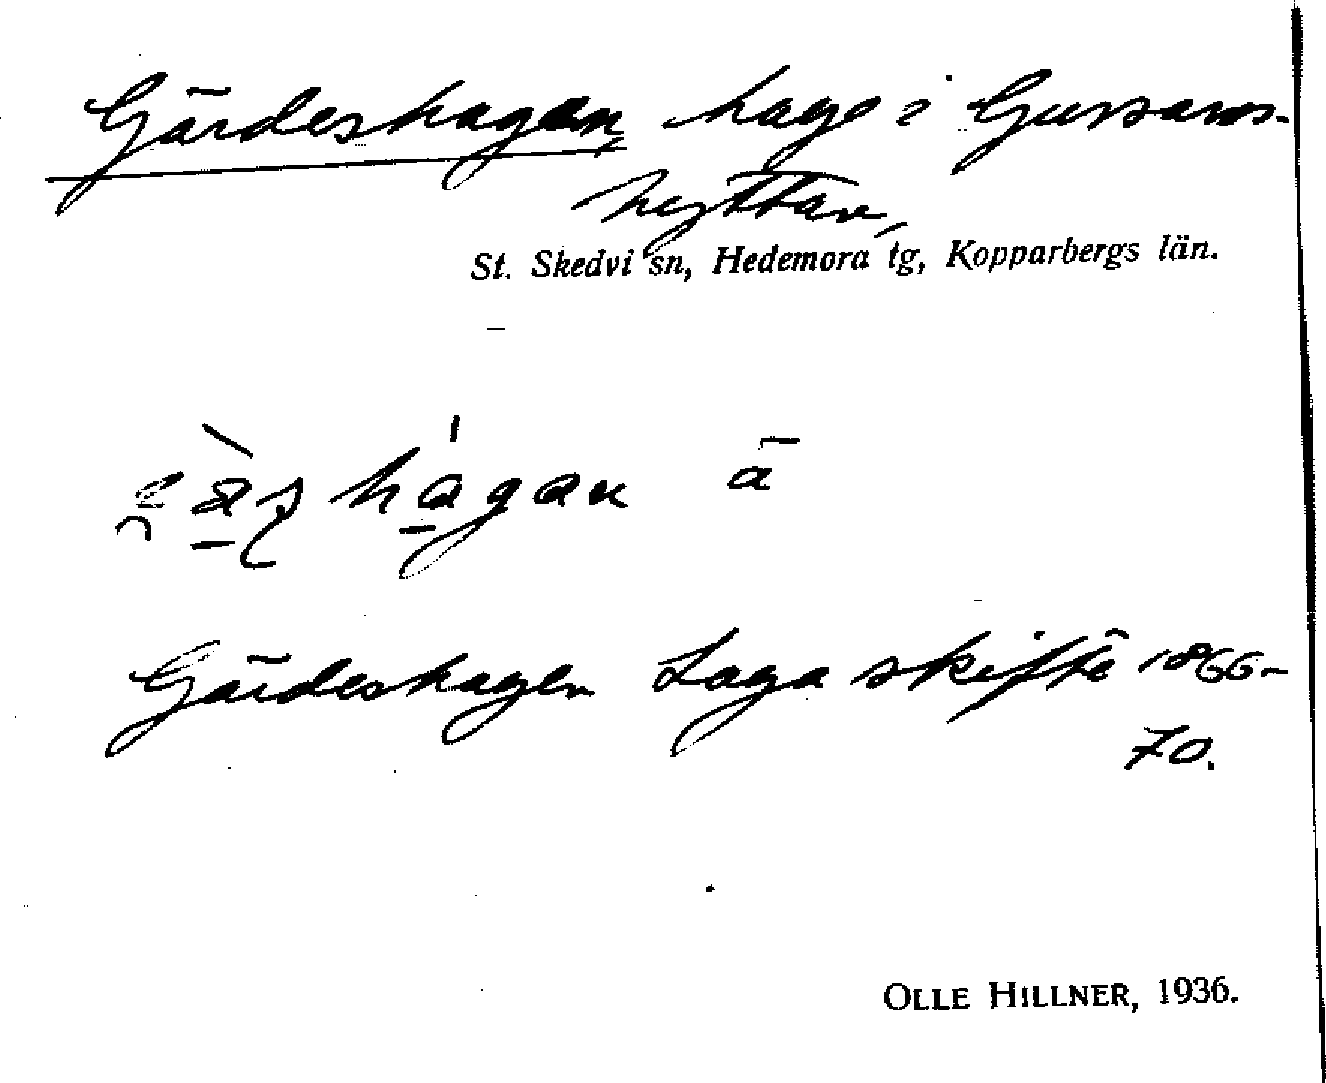 Gärdeshagen, hage i Gussarvs-
hyttan,
St. Skedvi sn, Hedemora tg, Kopparbergs län.
hagan ā
Gärdeshagen Laga skifte 1866-
70.
OLLE HILLNER, 1936.